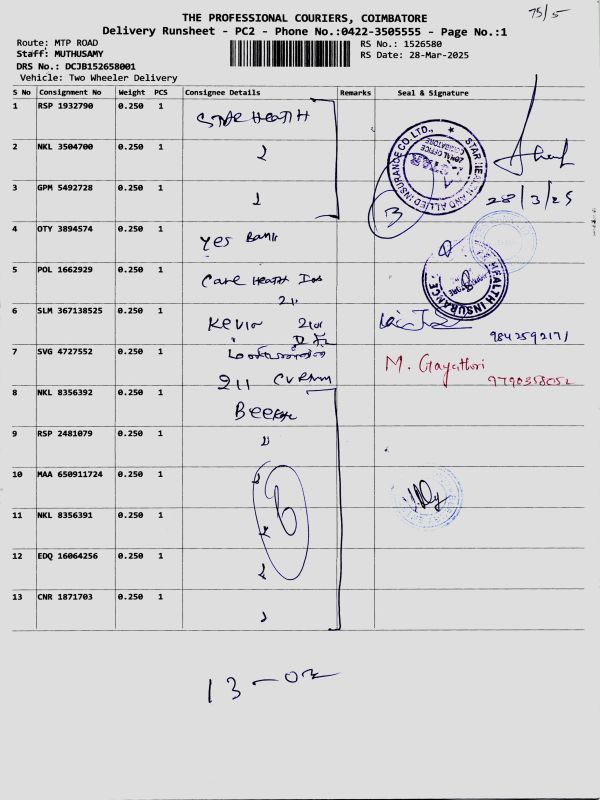 75/5
THE PROFESSIONAL COURIERS, COIMBATORE
Delivery Runsheet - PC2 - Phone No.:0422-3505555 - Page No.:1
Route: MTP ROAD
RS No.: 1526580
Staff: MUTHUSAMY
RS Date: 28-Mar-2025
DRS No.: DCJB152658001
Vehicle: Two Wheeler Delivery
S No Consignment No Weight PCS Consignee Details Remarks Seal & Signature
1 RSP 1932790 0.250 1 Star Health
2 NKL 3504700 0.250 1
3 GPM 5492728 0.250 1
3
28/3/25
4 OTY 3894574 0.250 1 Yes Bank
5 POL 1662929 0.250 1 Care Health Ins
HEALTH INSURANCE
6 SLM 367138525 0.250 1 Kevin
9842592171
7 SVG 4727552 0.250 1
M. Gayathri
211
8 NKL 8356392 0.250 1
9 RSP 2481079 0.250 1
10 MAA 650911724 0.250 1
11 NKL 8356391 0.250 1
6
12 EDQ 16064256 0.250 1
13 CNR 1871703 0.250 1